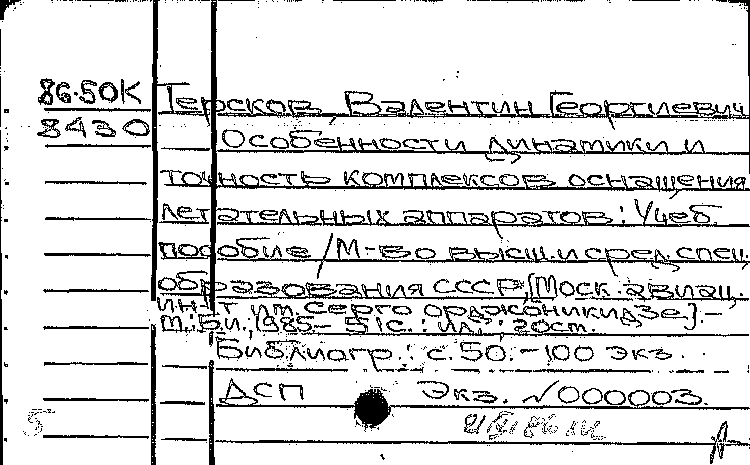 86-50К Терсков, Валентин Георгиевич
8430 Особенности динамики и
точность комплексов оснащения
летательных аппаратов: Учеб.
пособие / М-во высш. и сред. спец.
образования СССР, [Моск. авиац.
ин-т им. Серго Орджоникидзе]. -
М.: Б.и., 1985. - 51 с. : ил.; 20 см.
Библиогр.: с. 50. - 100 экз.
ДСП Экз. №000003.
5